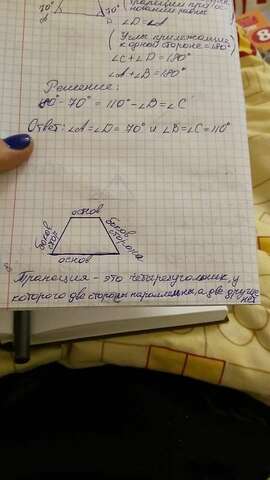 70° 70° трапеции при ос-
новании равны
∠D = ∠A
(Углы прилежащие
к одной стороне = 180°)
∠C+∠D=180°
∠A+∠B=180°
Решение:
180°-70° = 110°-∠B=∠C
Ответ: ∠A=∠D= 70° и ∠B=∠C=110°
основ
боков стор
боков сторона
основ
Трапеция - это четырехугольник, у
которого две стороны параллельны, а две другие
нет